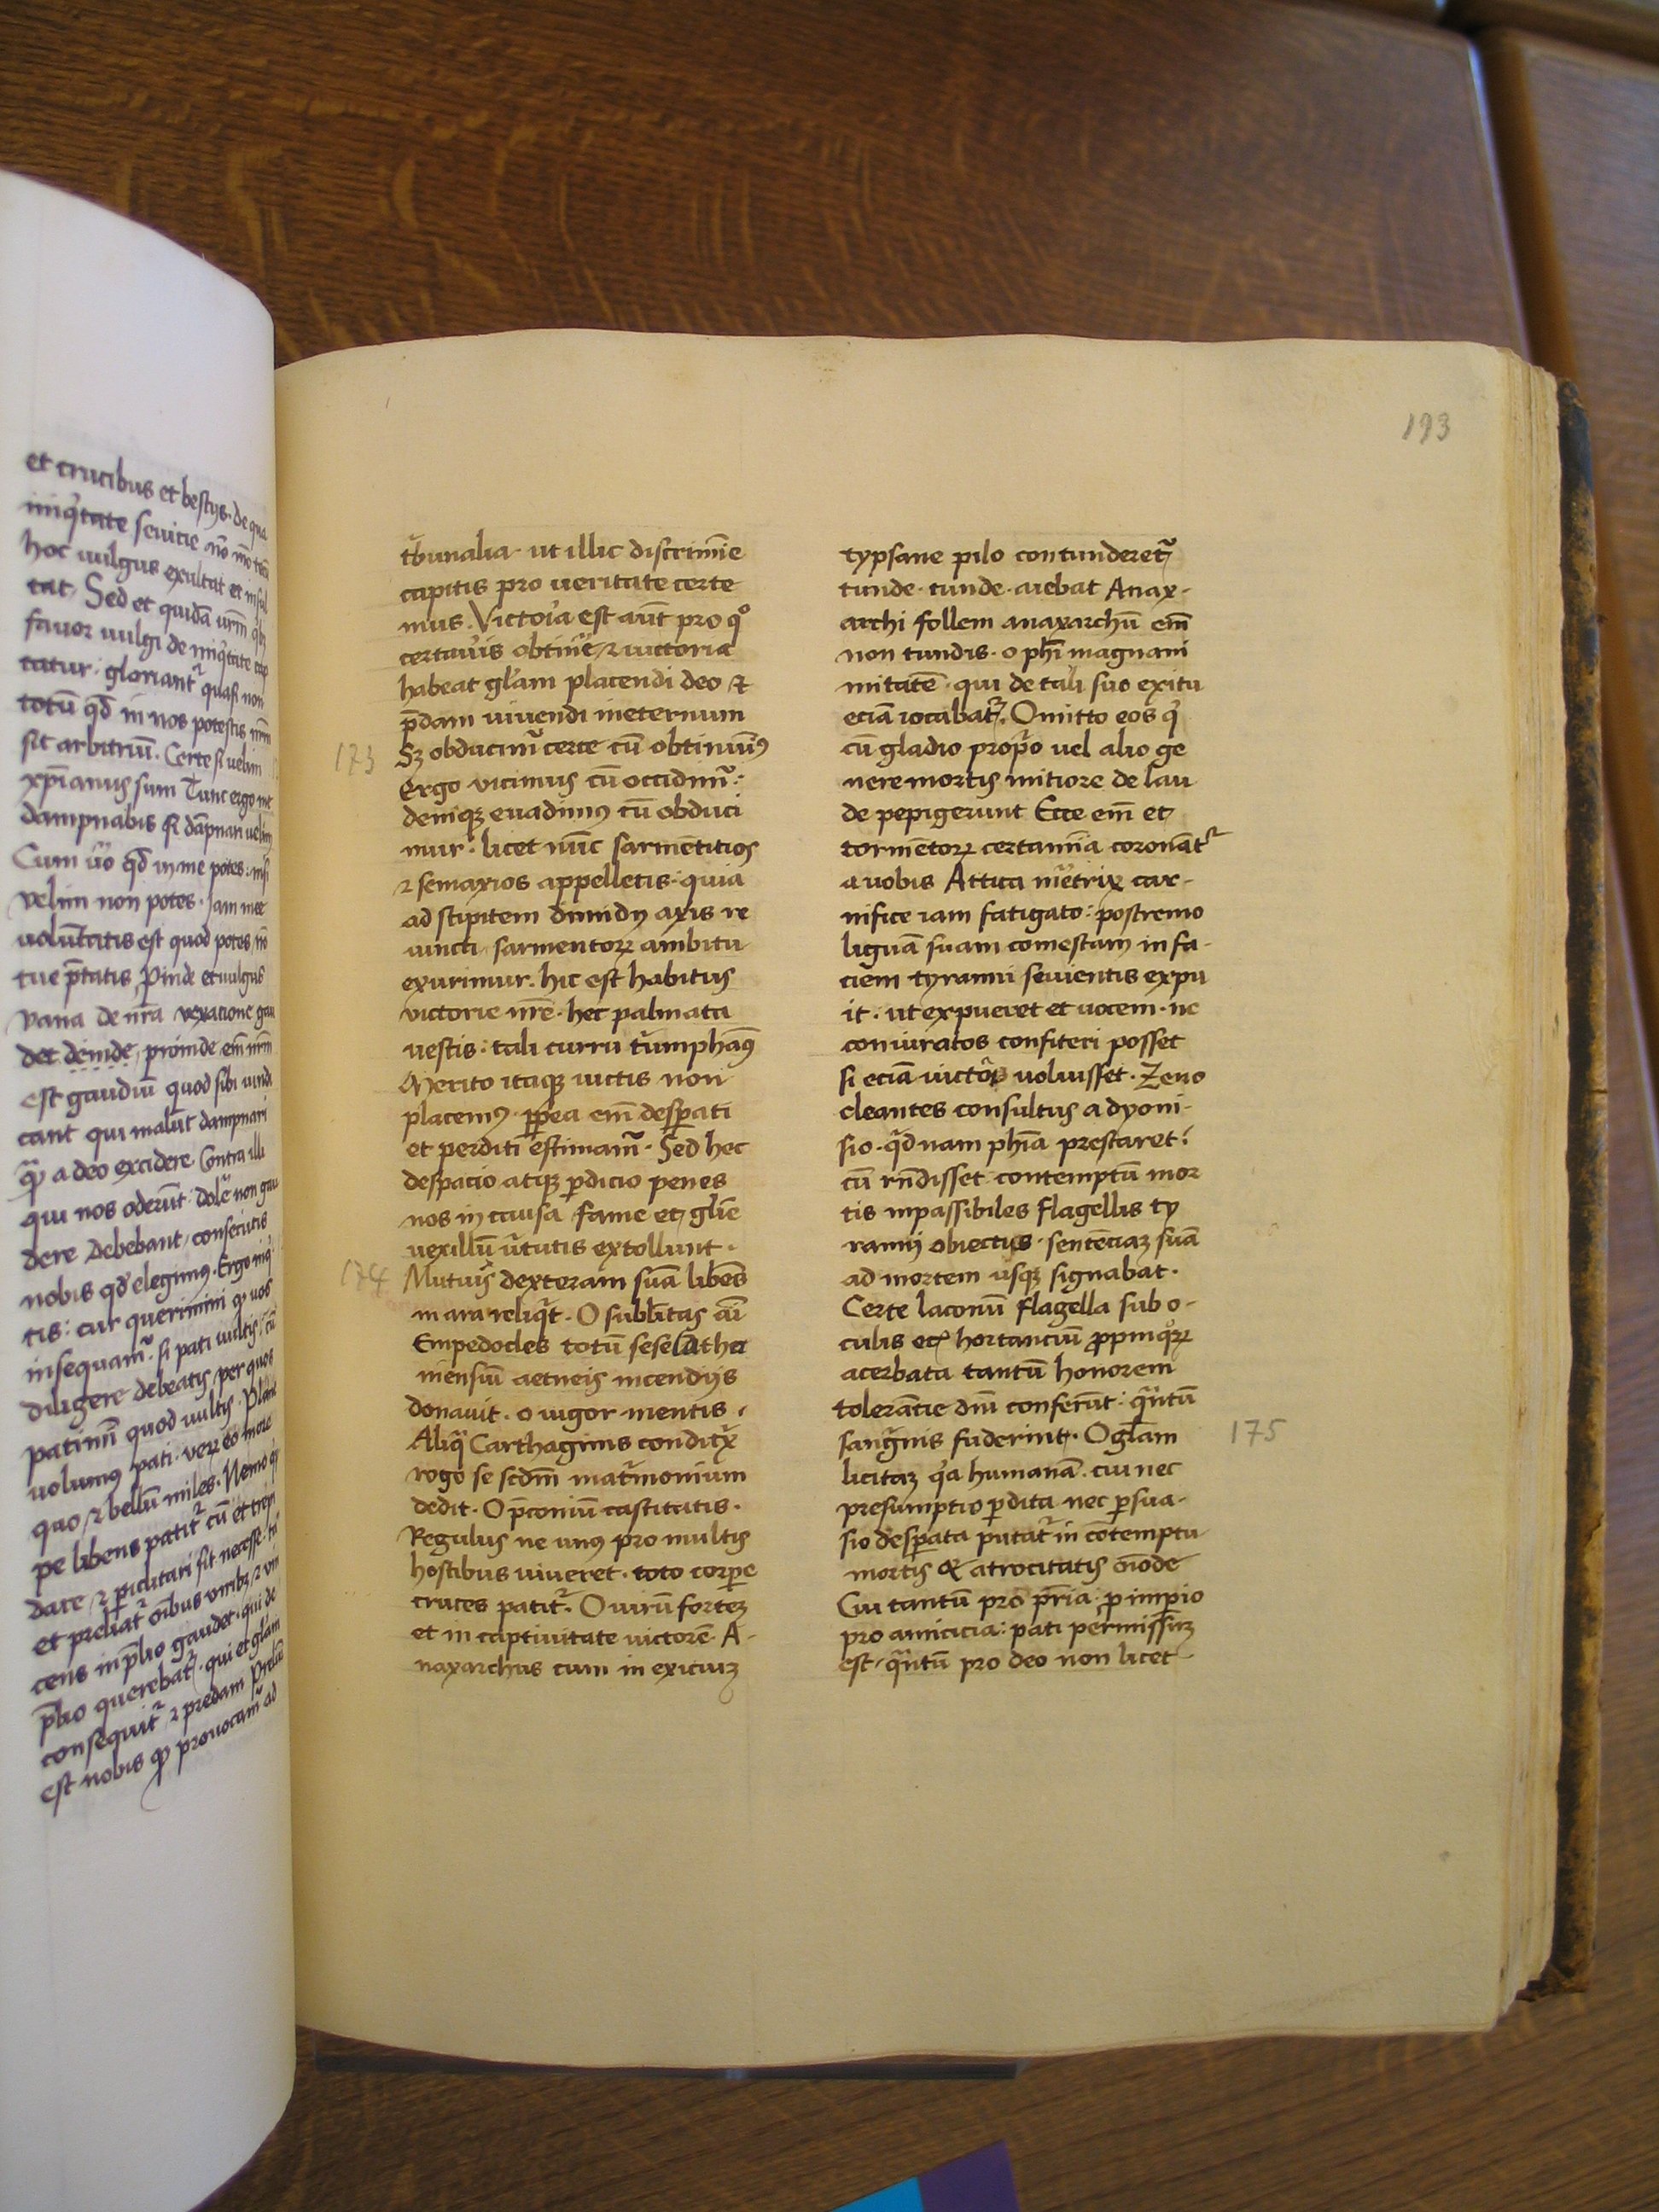 et crucibus et bestijs. de qua
iniq̇tate seuicie nō mō
hoc uulgus exultat et insul
tat. Sed et quidā ur̄m q̇bꝫ
fauor uulgi de iniq̇tate cap
tatur: glorianť quasi non
totū qd̄ in nos potestis nr̄m
sit arbitriū. Certe si uelim
xp̄ianus sum Tunc ergo me
dampnabis si dāpnari uelim
Cum ūo qd̄ in me potes: nisi
velim non potes. Jam mee
uolūtatis est quod potes nō
tue p̄tatis Pinde et uulgus
vana de nr̄a vexatione gau
det deinde, proinde em̄ nr̄m
est gaudiū quod sibi uindi
cant qui malūt dampnari
q̄ꝫ a deo excidere. Contra illi
qui nos oderūt: dolē non gau
dere debebant, consecutis
nobis qd̄ elegimꝰ. Ergo inq̇
tis: cur querimini q̇ uos
insequam̃. si pati uultis, cū
diligere debeatis, per quos
patimī quod uultis. Plane
uolumꝰ pati. veꝝ eo more
quo ⁊ bellū miles. Nemo q̇
pe libens patiť cū et trepi
dare ⁊ ꝑiclitari sit necesse. tn̄
et preliať oībus viribꝫ ⁊ vin
cens in p̄lio gaudet. qui de
p̄lio querebať. qui et glām
consequiť ⁊ predam Preliū
est nobis qꝫ prouocam̃ ad
193
tˀbunalia. ut illic discrimīe
capitis pro ueritate certe
mus. Victoˀia est aūt pro qͦ
certauˀis obtinē ⁊ uictoria
habeat glˀam placendi deo ⁊
p̄dam uiuendi ineternum
173 Sꝫ obducim̃ certe cū obtinuīꝰ
Ergo vicimus cū occidim̃:
deniqꝫ euadimꝰ cū obduci
mur. licet nūc sarmētitios
⁊ semaxios appelletis. quia
ad stipitem dimidij axis re
uincti sarmentoꝝ ambitu
exurimur. hic est habitus
victorie nr̄e. hec palmata
vestis. tali curru tˀumphamꝰ
Merito itaqꝫ uictis non
placemꝰ. ꝓpea em̄ desꝑati
et perditi estimam̃. Sed hec
desꝑacio atqꝫ ꝑdicio penes
nos in causa fame et glˀie
uexillū uˀtutis extollunt.
174 Mutuis dexteram suā libēs
in ara reliq̇t. O sublˀitas aīi
Empedocles totū sese Cathe
niensiū aetneis incendijs
donauit. o uigor mentis.
Aliqͣ Carthaginis conditˀx
rogo se scdm̄ matˀmonium
dedit. O p̄coniū castitatis.
Regulus ne unꝰ pro multis
hostibus uiueret. toto corꝑe
cruces patiť. O uirū fortem
et in captiuitate uictorē. A-
naxarchus cum in exiciuꝫ
typsane pilo contundereť
tunde. tunde. aiebat Anax-
archi follem anaxarchū em̄
non tundis. o phˀi magnani
mitatē. qui de tali suo exitu
eciā iocabať. Omitto eos q̇
cū gladio propˀo uel alio ge
nere mortis mitiore de lau
de pepigerunt Ecce em̄ et
tormētoꝝ certamīa coronāť
a uobis Attica mˀetrix car-
nifice iam fatigato: postremo
liguā suam comestam in fa-
ciem tyranni seuientis expu
it. ut expueret et uocem. ne
coniuratos confiteri posset
si eciā uictᵃ uoluisset. Zeno
cleantes consultus a dyoni-
sio. qͥd nam phīa prestaret:
cū rn̄disset contemptū mor
tis inpassibiles flagellis ty
ranni obiectus. sentenciaꝫ suā
ad mortem usqꝫ signabat.
Certe laconū flagella sub o-
culis eciā hortanciū ꝓpinqͦꝝ
acerbata tantū honorem
tolerācie dm̄i conferūt. qͣntū
175 sangͥnis fuderint. O glˀam
licitaꝫ qͥa humanā. cui nec
presumptio ꝑdita nec ꝑsua-
sio desꝑata putať in cōtemptu
mortis & atrocitatis oīmode
Cui tantū pro pr̄ia. ꝓ impio
pro amicicia: pati permissuꝫ
est, qͣntū pro deo non licet